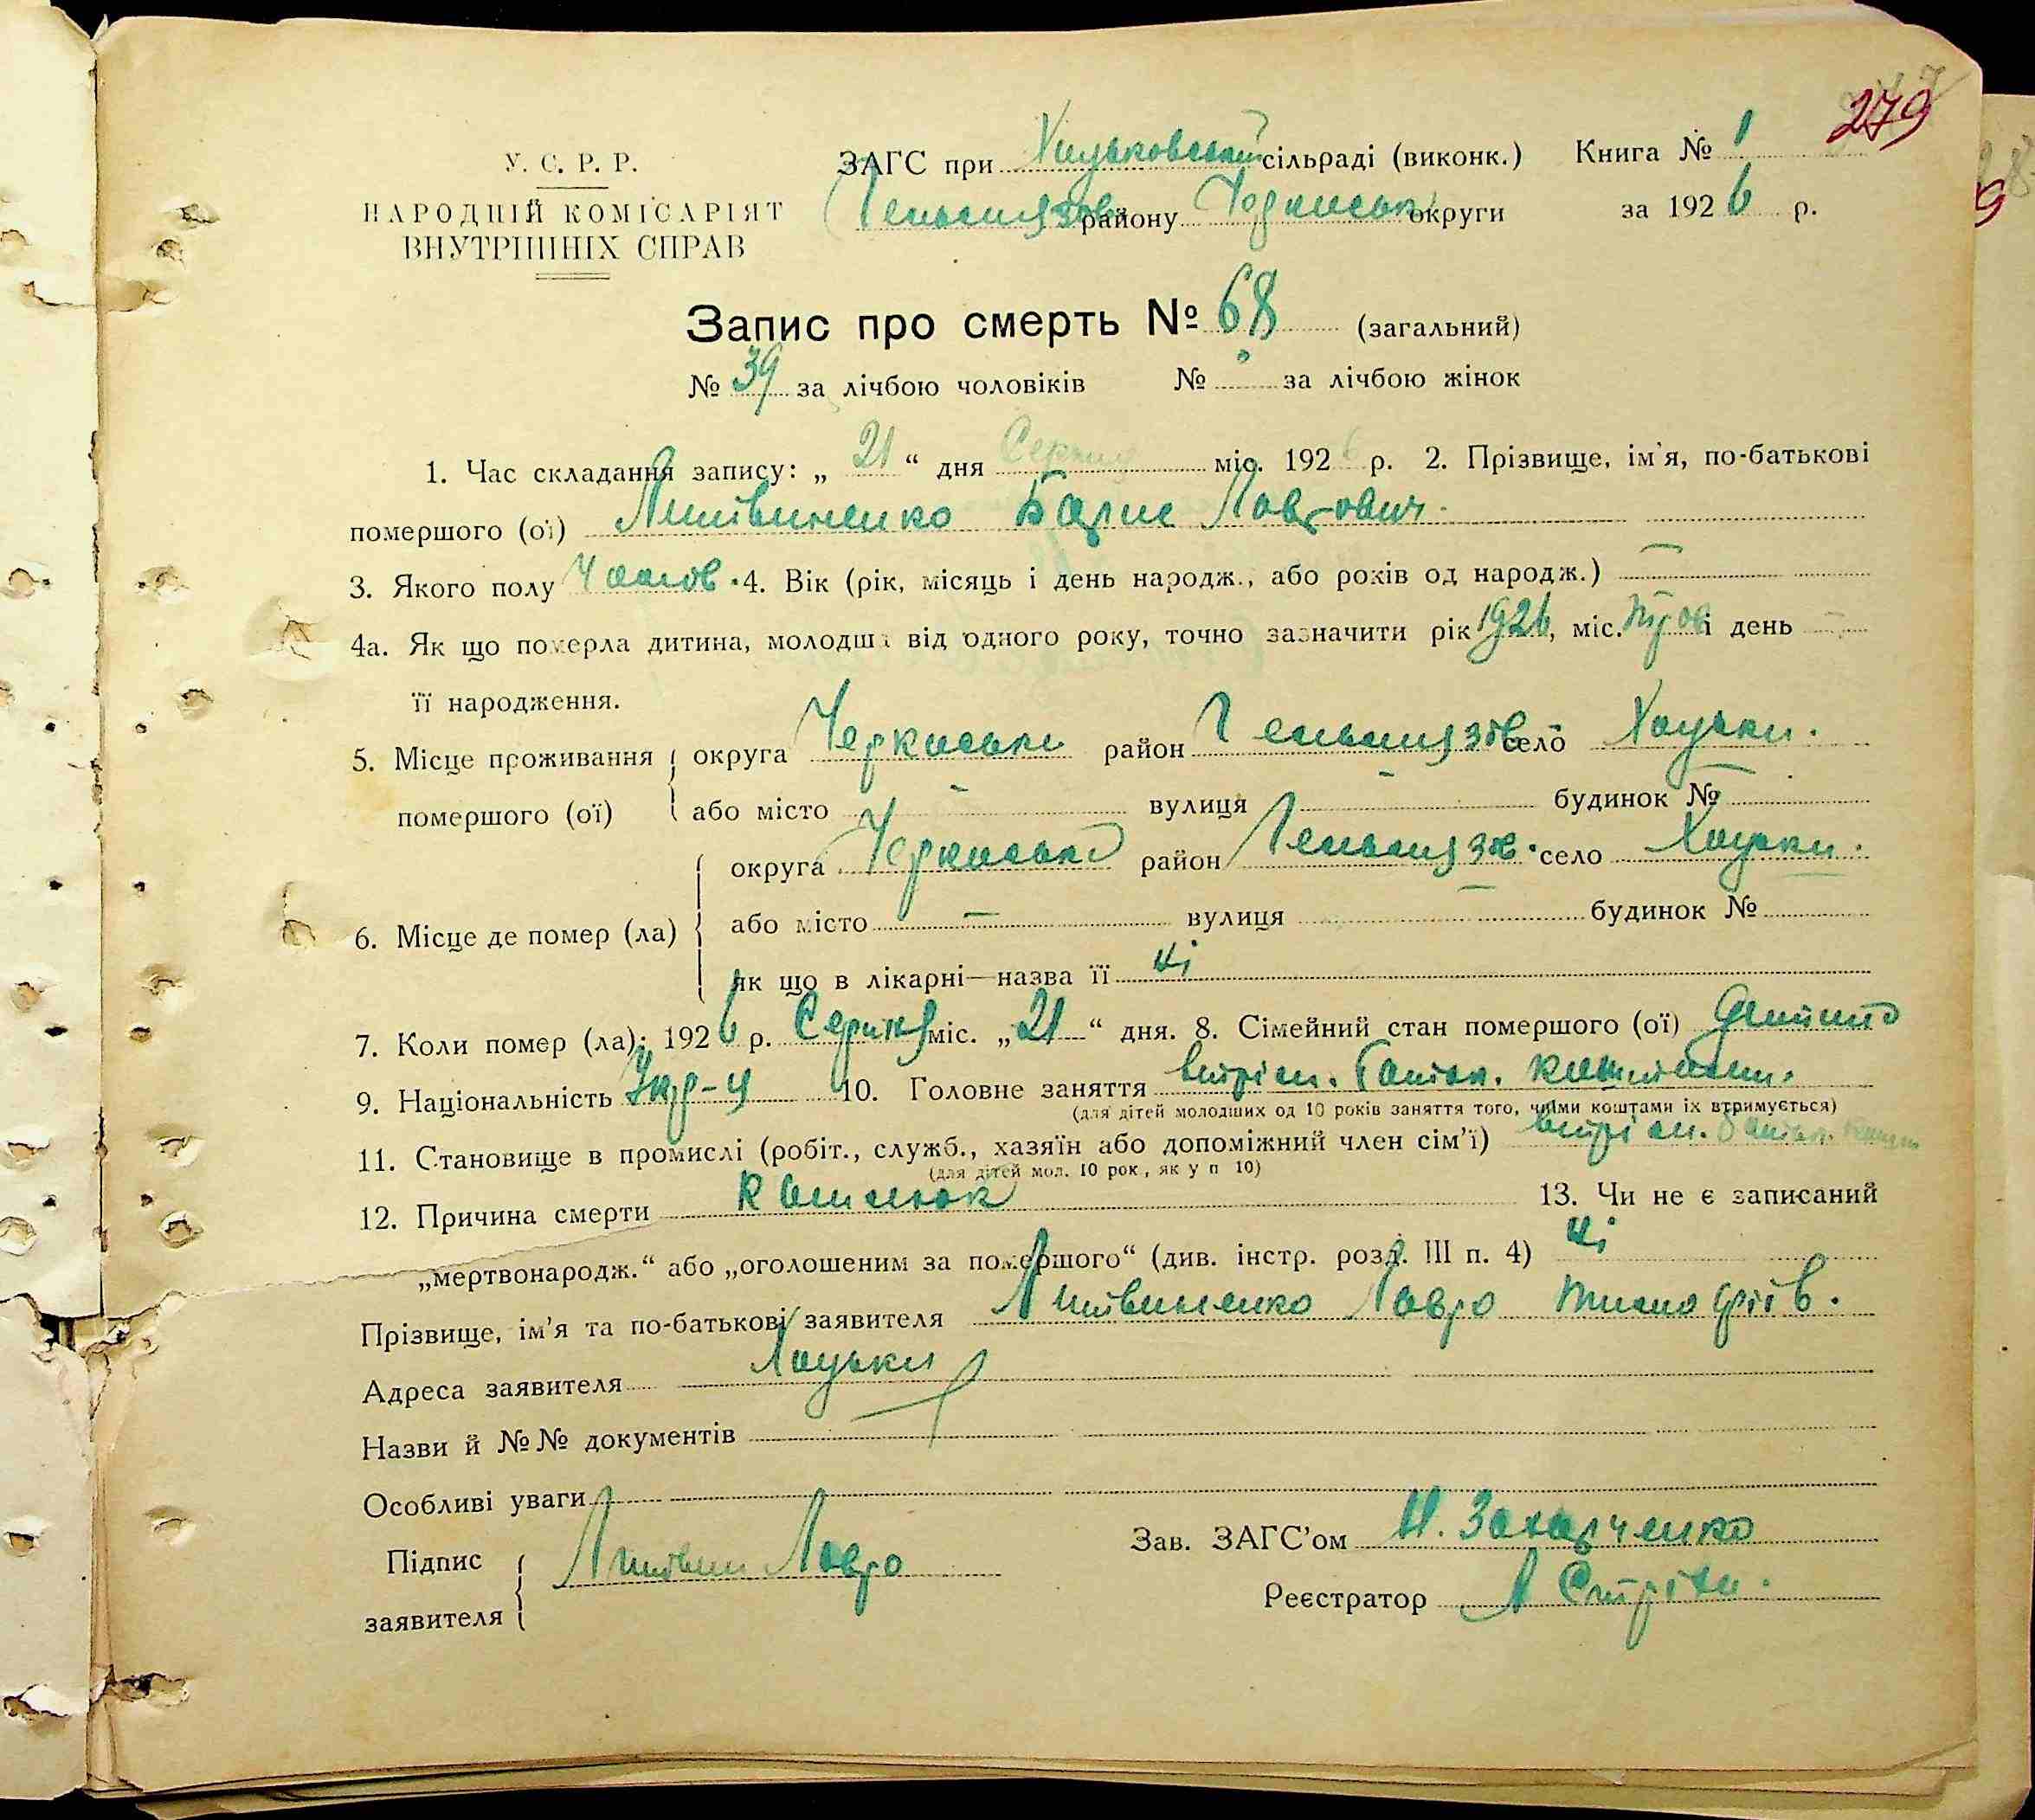 279
У. С. Р. Р.
НАРОДНІЙ КОМІСАРІЯТ
ВНУТРІШНІХ СПРАВ
ЗАГС при Хацьковській сільраді (виконк.) Книга № 1
району Черкаськ округи за 1926 р.
Запис про смерть № 68 (загальний)
№ 39 за лічбою чоловіків № за лічбою жінок
1. Час складання запису: „ 21 “ дня Серпня міс. 1926 р. 2. Прізвище, ім'я, по-батькові
помершого (ої) Литвиненко Борис Лаврович.
3. Якого полу Чолов. 4. Вік (рік, місяць і день народж., або років од народж.) —
4а. Як що померла дитина, молодша від одного року, точно зазначити рік 1926, міс. і день —
її народження.
5. Місце проживання округа Черкаська район село Хацьки.
помершого (ої) або місто — вулиця — будинок № —
округа Черкаська район село Хацьки.
6. Місце де помер (ла) або місто — вулиця — будинок №
як що в лікарні—назва її ні
7. Коли помер (ла): 1926 р. Серпня міс. „ 21 “ дня. 8. Сімейний стан помершого (ої) Дитина
9. Національність Укр-ц 10. Головне заняття втрім. Батьк. коштами.
(для дітей молодших од 10 років заняття того, чиїми коштами їх втримується)
11. Становище в промислі (робіт., служб., хазяїн або допоміжний член сім'ї) втрім. батьк. кошт
(для дітей мол. 10 рок., як у п 10)
12. Причина смерти Кашлюк 13. Чи не є записаний
„мертвонародж.“ або „оголошеним за помершого“ (див. інстр. розд. III п. 4) ні
Прізвище, ім'я та по-батькові заявителя Литвиненко Лавро
Адреса заявителя Хацьки
Назви й №№ документів
Особливі уваги
Підпис
заявителя Литвин Лавро
Зав. ЗАГС'ом Захарченко
Реєстратор